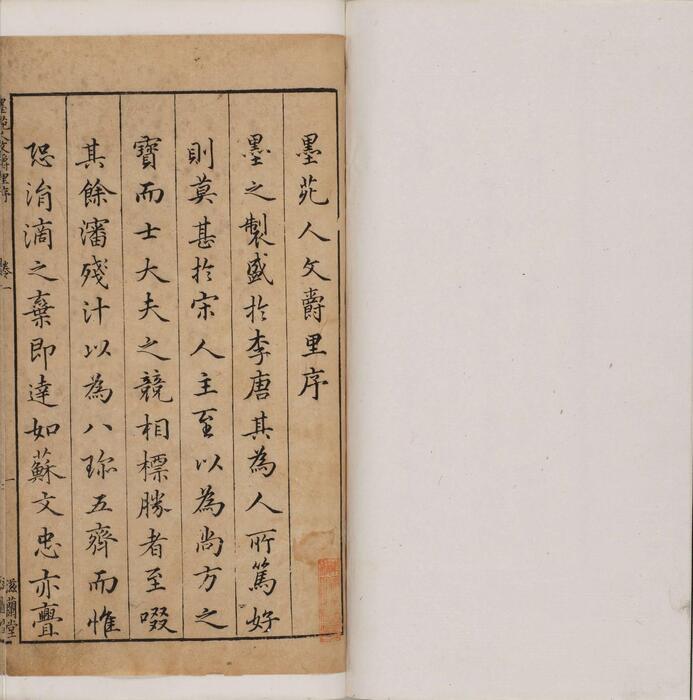 墨苑人文爵里序
墨之製盛於李唐其為人所篤好
則莫甚於宋人主至以為尚方之
寶而士大夫之競相標勝者至啜
其餘瀋殘汁以為八珎五齊而惟
恐涓滴之棄即達如蘇文忠亦亹
墨苑人文爵里序
卷一
一
滋蘭堂